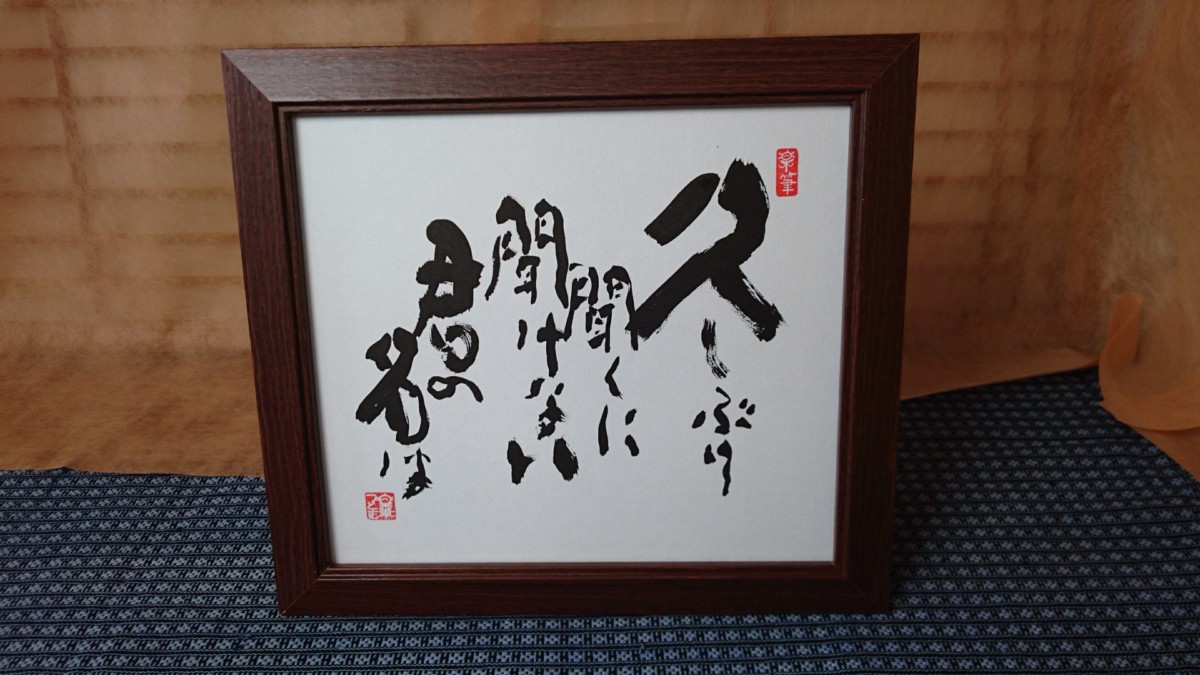 楽筆
久しぶり
聞くに
聞けない
君の
名は